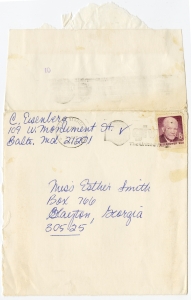 C. Eisenberg
109 W. Monument St.
Balto. Md. 21201
Miss Esther Smith
Box 766
Clayton, Georgia
30525